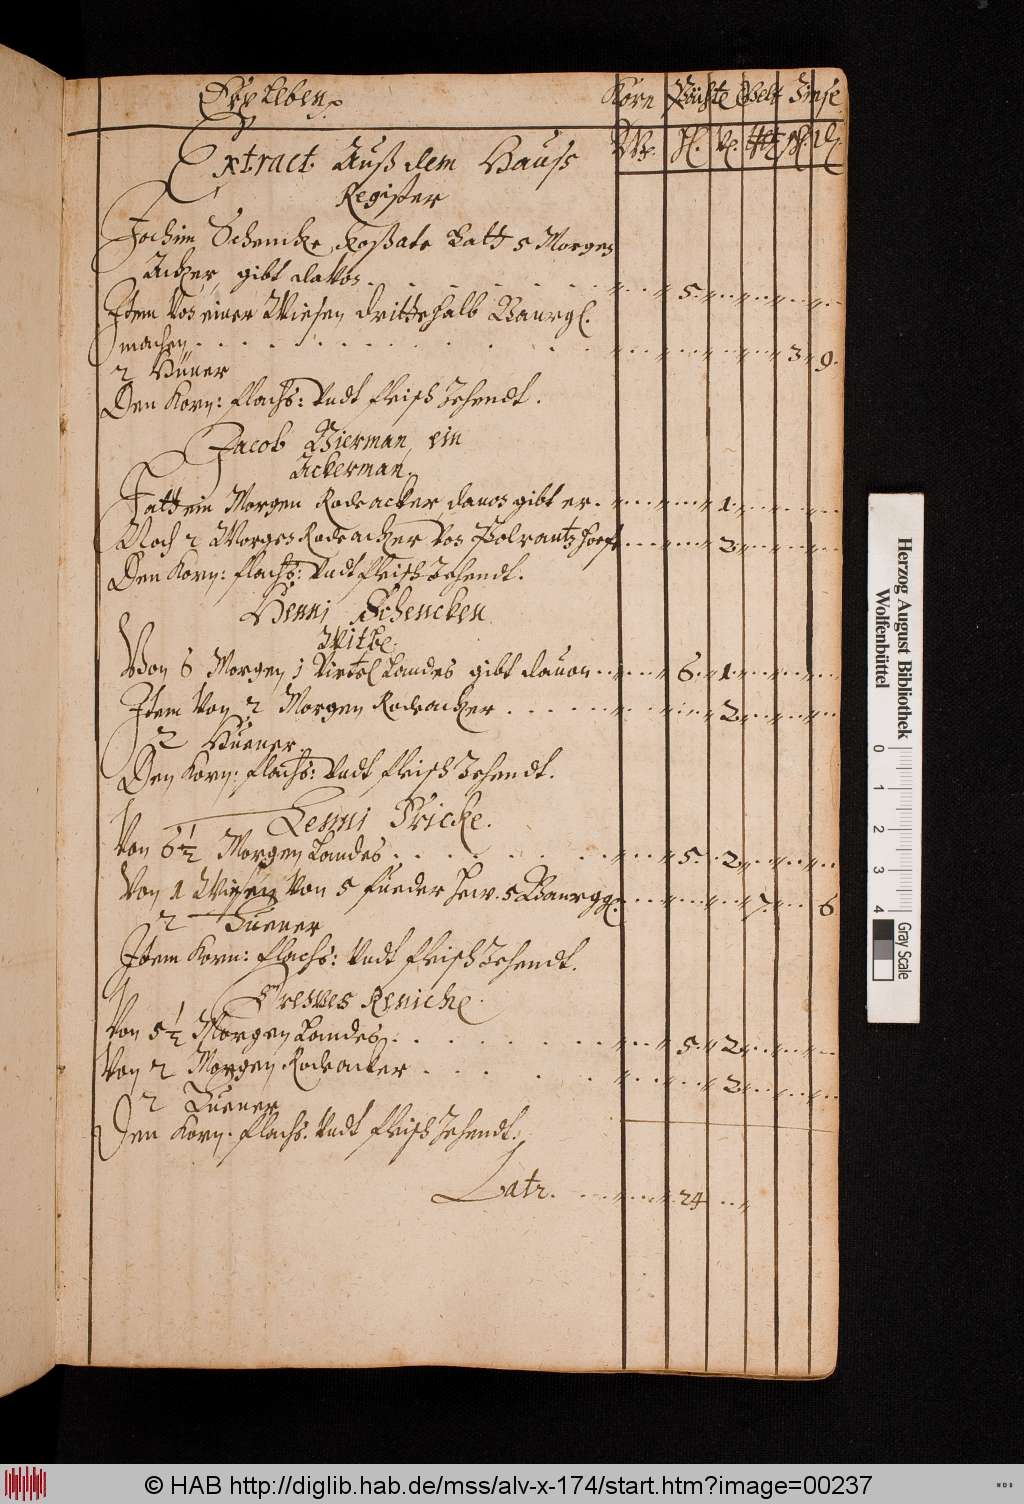 Korn Pächte Gelt Zinse
Extract Auß dem Hauß
Register
Jochim Schencke, Koßate hatt 5 Morgen
Acker, gibt davon 5
Item von einer Wiesen drittehalb Baurgl.
machen 3 9
2 Hüner
Den Korn: flachs: undt fleisch Zehendt.
Jacob Bierman, ein
Ackerman,
Hatt ein Morgen Rodeacker, davon gibt er. 1
Noch 2 Morgen Rodeacker von 2
Den Korn: flachs: undt fleisch Zehendt.
Henni Schencken
Witbe.
Von 6 Morgen 1 Viertel Landes gibt davon 6 1
Item von 2 Morgen Rodeacker 2
2 Hüener
Den Korn: flachs: undt fleisch Zehendt.
Henni Fricke.
Von 6½ Morgen Landes 5 2
Von 1 Wiesen von 5 fueder Hew. 5 Baurggl. 7 6
2 Huener
Item Korn: flachs: undt fleisch Zehendt.
Drewes Reniche.
Von 5½ Morgen Landes 5 2
Von 2 Morgen Rodeacker 2
2 Huener
Den Korn: flachs: undt fleisch Zehendt.
Latr. 24
Herzog August Bibliothek
Wolfenbüttel
0 1 2 3 4
Gray Scale
© HAB http://diglib.hab.de/mss/alv-x-174/start.htm?image=00237